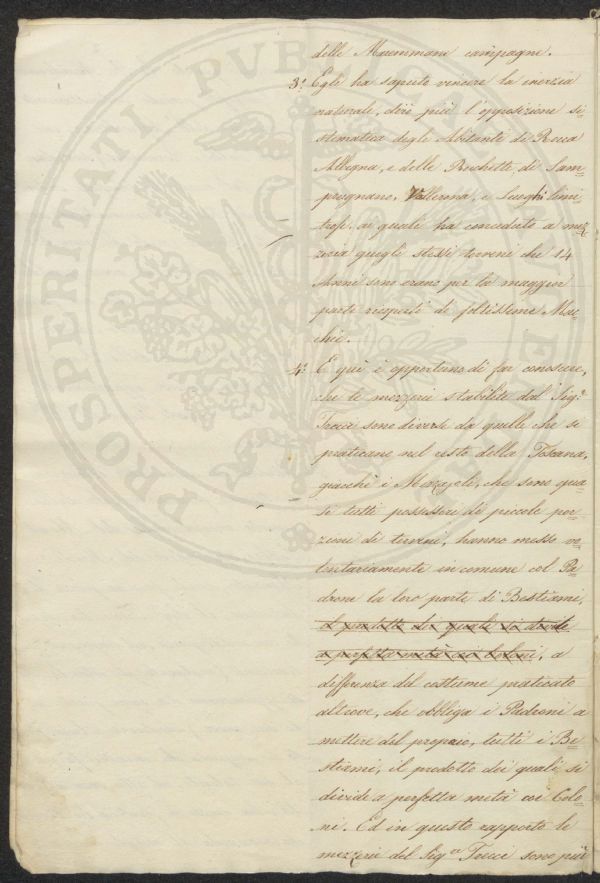 delle Maremmane campagne.
3.° Egli ha saputo vincere la inerzia
naturale, dirò più l'opposizione si=
stematica degli Abitanti di Rocca
Albegna, e delle Rochette, di Sam=
prugnano, Vallerona, e Luoghi limi
trofi, ai quali ha conceduto a mez=
zeria quegli stessi terreni che 14
Anni sono erano per la maggior
parte ricoperti di foltissime Mac=
chie.
4.° E quì è opportuno di far conoscere,
che le mezzerie stabilite dal Sig.r
sono diverse da quelle che si
praticano nel resto della Toscana,
giacchè i Mezzajoli, che sono qua=
si tutti possessori di piccole por=
zioni di terreni, hanno messo vo=
lontariamente in comune col Pa=
drone la loro parte di Bestiami,
il prodotto dei quali si divide
a perfetta metà coi Coloni, a
differenza del costume praticato
altrove, che obbliga i Padroni a
mettere del proprio, tutti i Be=
stiami, il prodotto dei quali si
divide a perfetta metà coi Colo=
ni. Ed in questo rapporto le
mezzerie del Sig.re sono più
PROSPERITATI PUBLICAE